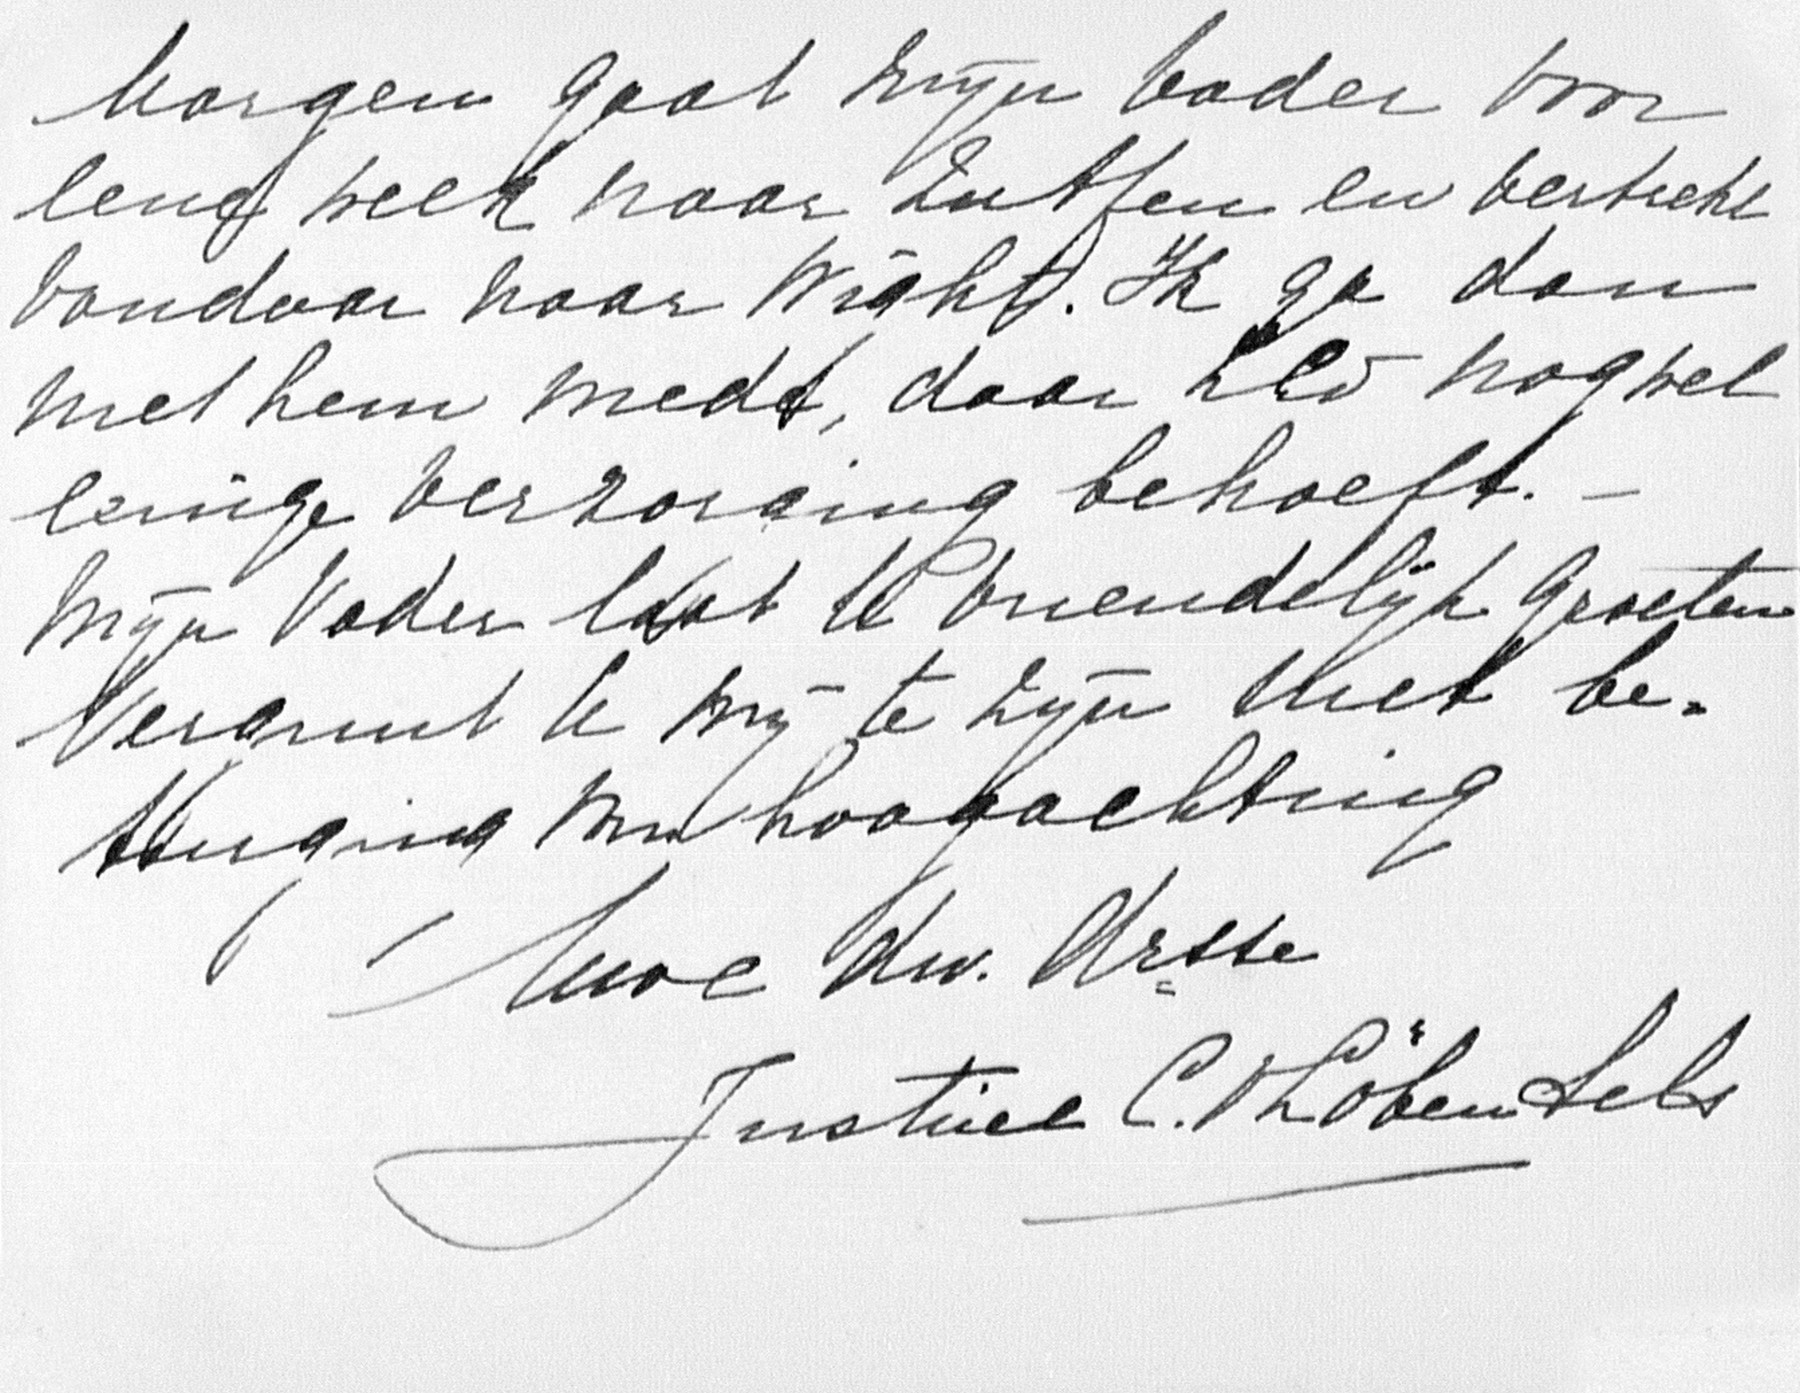 Morgen gaat mijn vader voor
een week naar Zutfen en vertrekt
vandaar naar Wight. Ik ga dan
met hem mede, daar ZEd nog wel
eenige verzorging behoeft. -
Mijn Vader laat U vriendelijk groeten
Vergunt U mij te zijn met be-
tuiging mr hoogachting
Uwe dw. Drsse
Justine C.